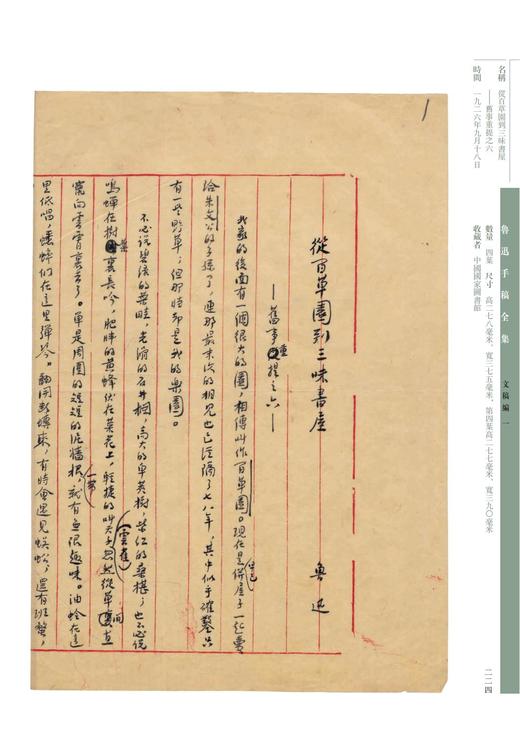 名稱 從百草園到三味書屋
——舊事重提之六
時間 一九二六年九月十八日
數量 四葉 尺寸 高二七八毫米、寬三七五毫米,第四葉高二七七毫米、寬三九〇毫米
收藏者 中國國家圖書館
魯迅手稿全集 文稿編 一
二二四
1
從百草園到三味書屋
——舊事重提之六——
魯迅
我家的後面有一個很大的園,相傳叫作百草園。現在是早已併屋子一起賣
給朱文公的子孫了,連那最末次的相見也已經隔了七八年,其中似乎確鑿只
有一些野草;但那時卻是我的樂園。
不必說碧綠的菜畦,光滑的石井欄,高大的皁莢樹,紫紅的桑椹;也不必說
鳴蟬在樹葉裏長吟,肥胖的黃蜂伏在菜花上,輕捷的叫天子(雲雀)忽然從草間直
竄向雲霄裏去了。單是周圍的短短的泥牆根一帶,就有無限趣味。油蛉在這
里低唱,蟋蟀們在這里彈琴。翻開斷塼來,有時會遇見蜈蚣;還有班蝥,